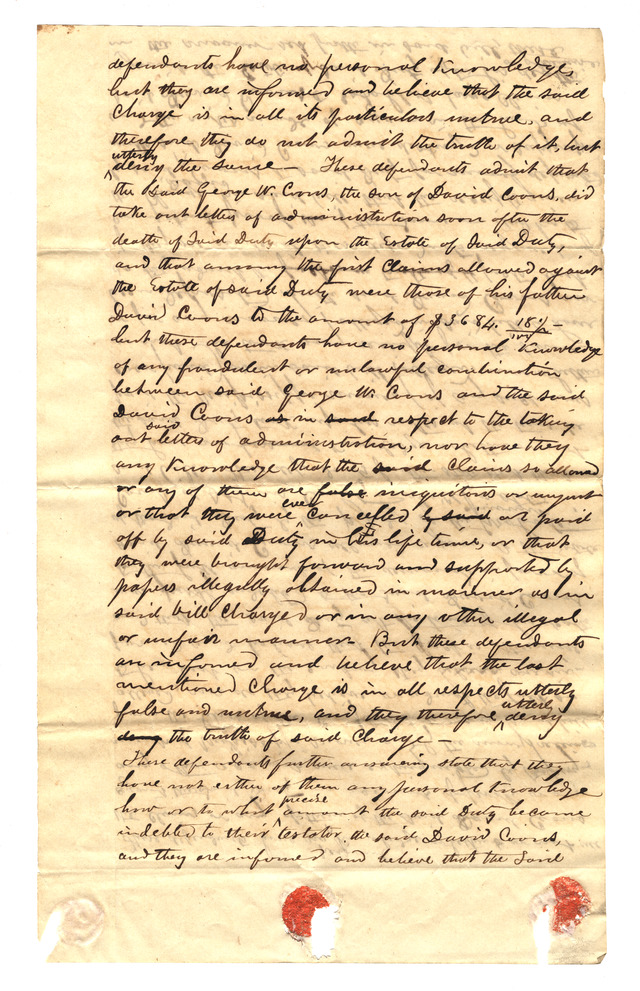 defendants have no personal Knowledge,
but they are informed and believe that the said
Charge is in all its particulars untrue, and
therefore they do not admit the truth of it, but
utterly
deny the same — These defendants admit that
the said George W. Coons, the son of David Coons, did
take out letters of administration soon after the
death of said Duty upon the Estate of said Duty,
and that among the first Claims allowed against
the Estate of said Duty were those of his father
David Coons to the amount of $3684. 18/100 —
but these defendants have no personal Knowledge
of any fraudulent or unlawful combination
between said George W. Coons and the said
David Coons as in said respect to the taking
said
out letters of administration, nor have they
any Knowledge that the said Claims so allowed
or any of them are false iniquitous or unjust
ever
or that they were cancelled by said or paid
off by said Duty in his life time, or that
they were brought forward and supported by
papers illegally obtained in manner as in
said bill Charged or in any other illegal
or unfair manner. But these defendants
are informed and believe that the last
mentioned Charge is in all respects utterly
utterly
false and untrue, and they therefore deny
deny the truth of said Charge —
These defendants further answering state that they
have not either of them any personal Knowledge
precise
how or to what amount the said Duty became
indebted to their testator, the said David Coons,
and they are informed and believe that the said